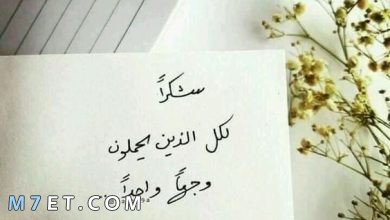 شكراً
لكل الذين يحملون
وجهاً واحداً
M7ET.COM